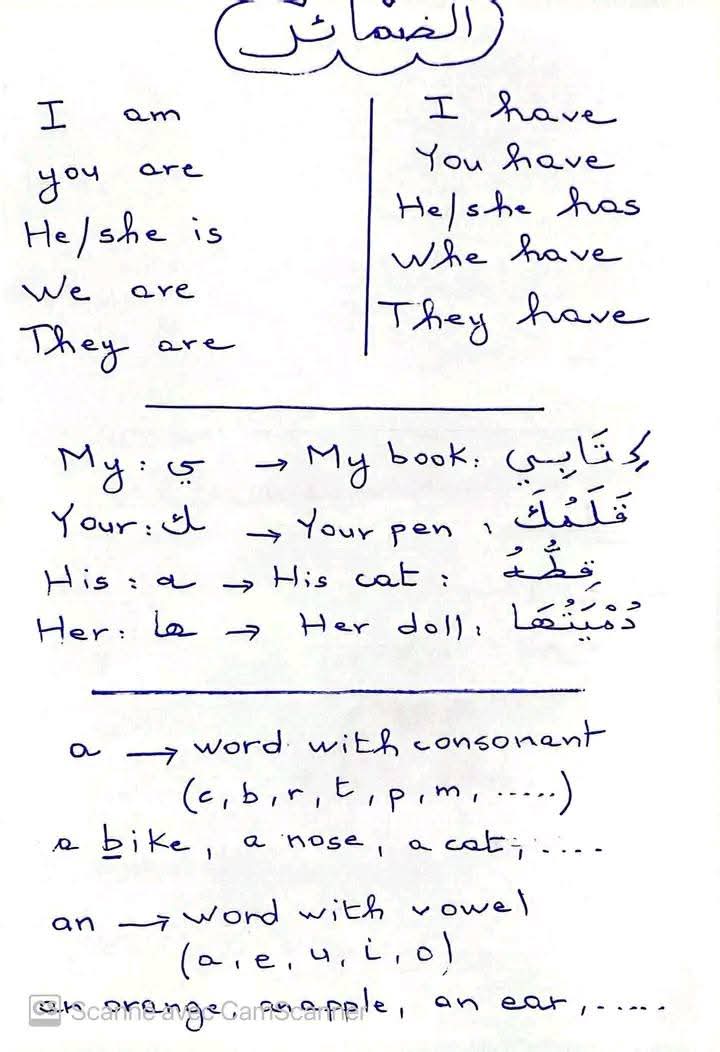 الضمائر
I am
you are
He/she is
We are
They are
I have
You have
He/she has
Whe have
They have
My: ي → My book: كِتَابِي
Your: ك → Your pen: قَلَمُكَ
His: ه → His cat: قِطُّهُ
Her: ها → Her doll: دُمْيَتُهَا
a → word with consonant
(c, b, r, t, p, m, .....)
a bike, a nose, a cat, ....
an → word with vowel
(a, e, u, i, o)
an orange, an apple, an ear, .....
CS Scanné avec CamScanner